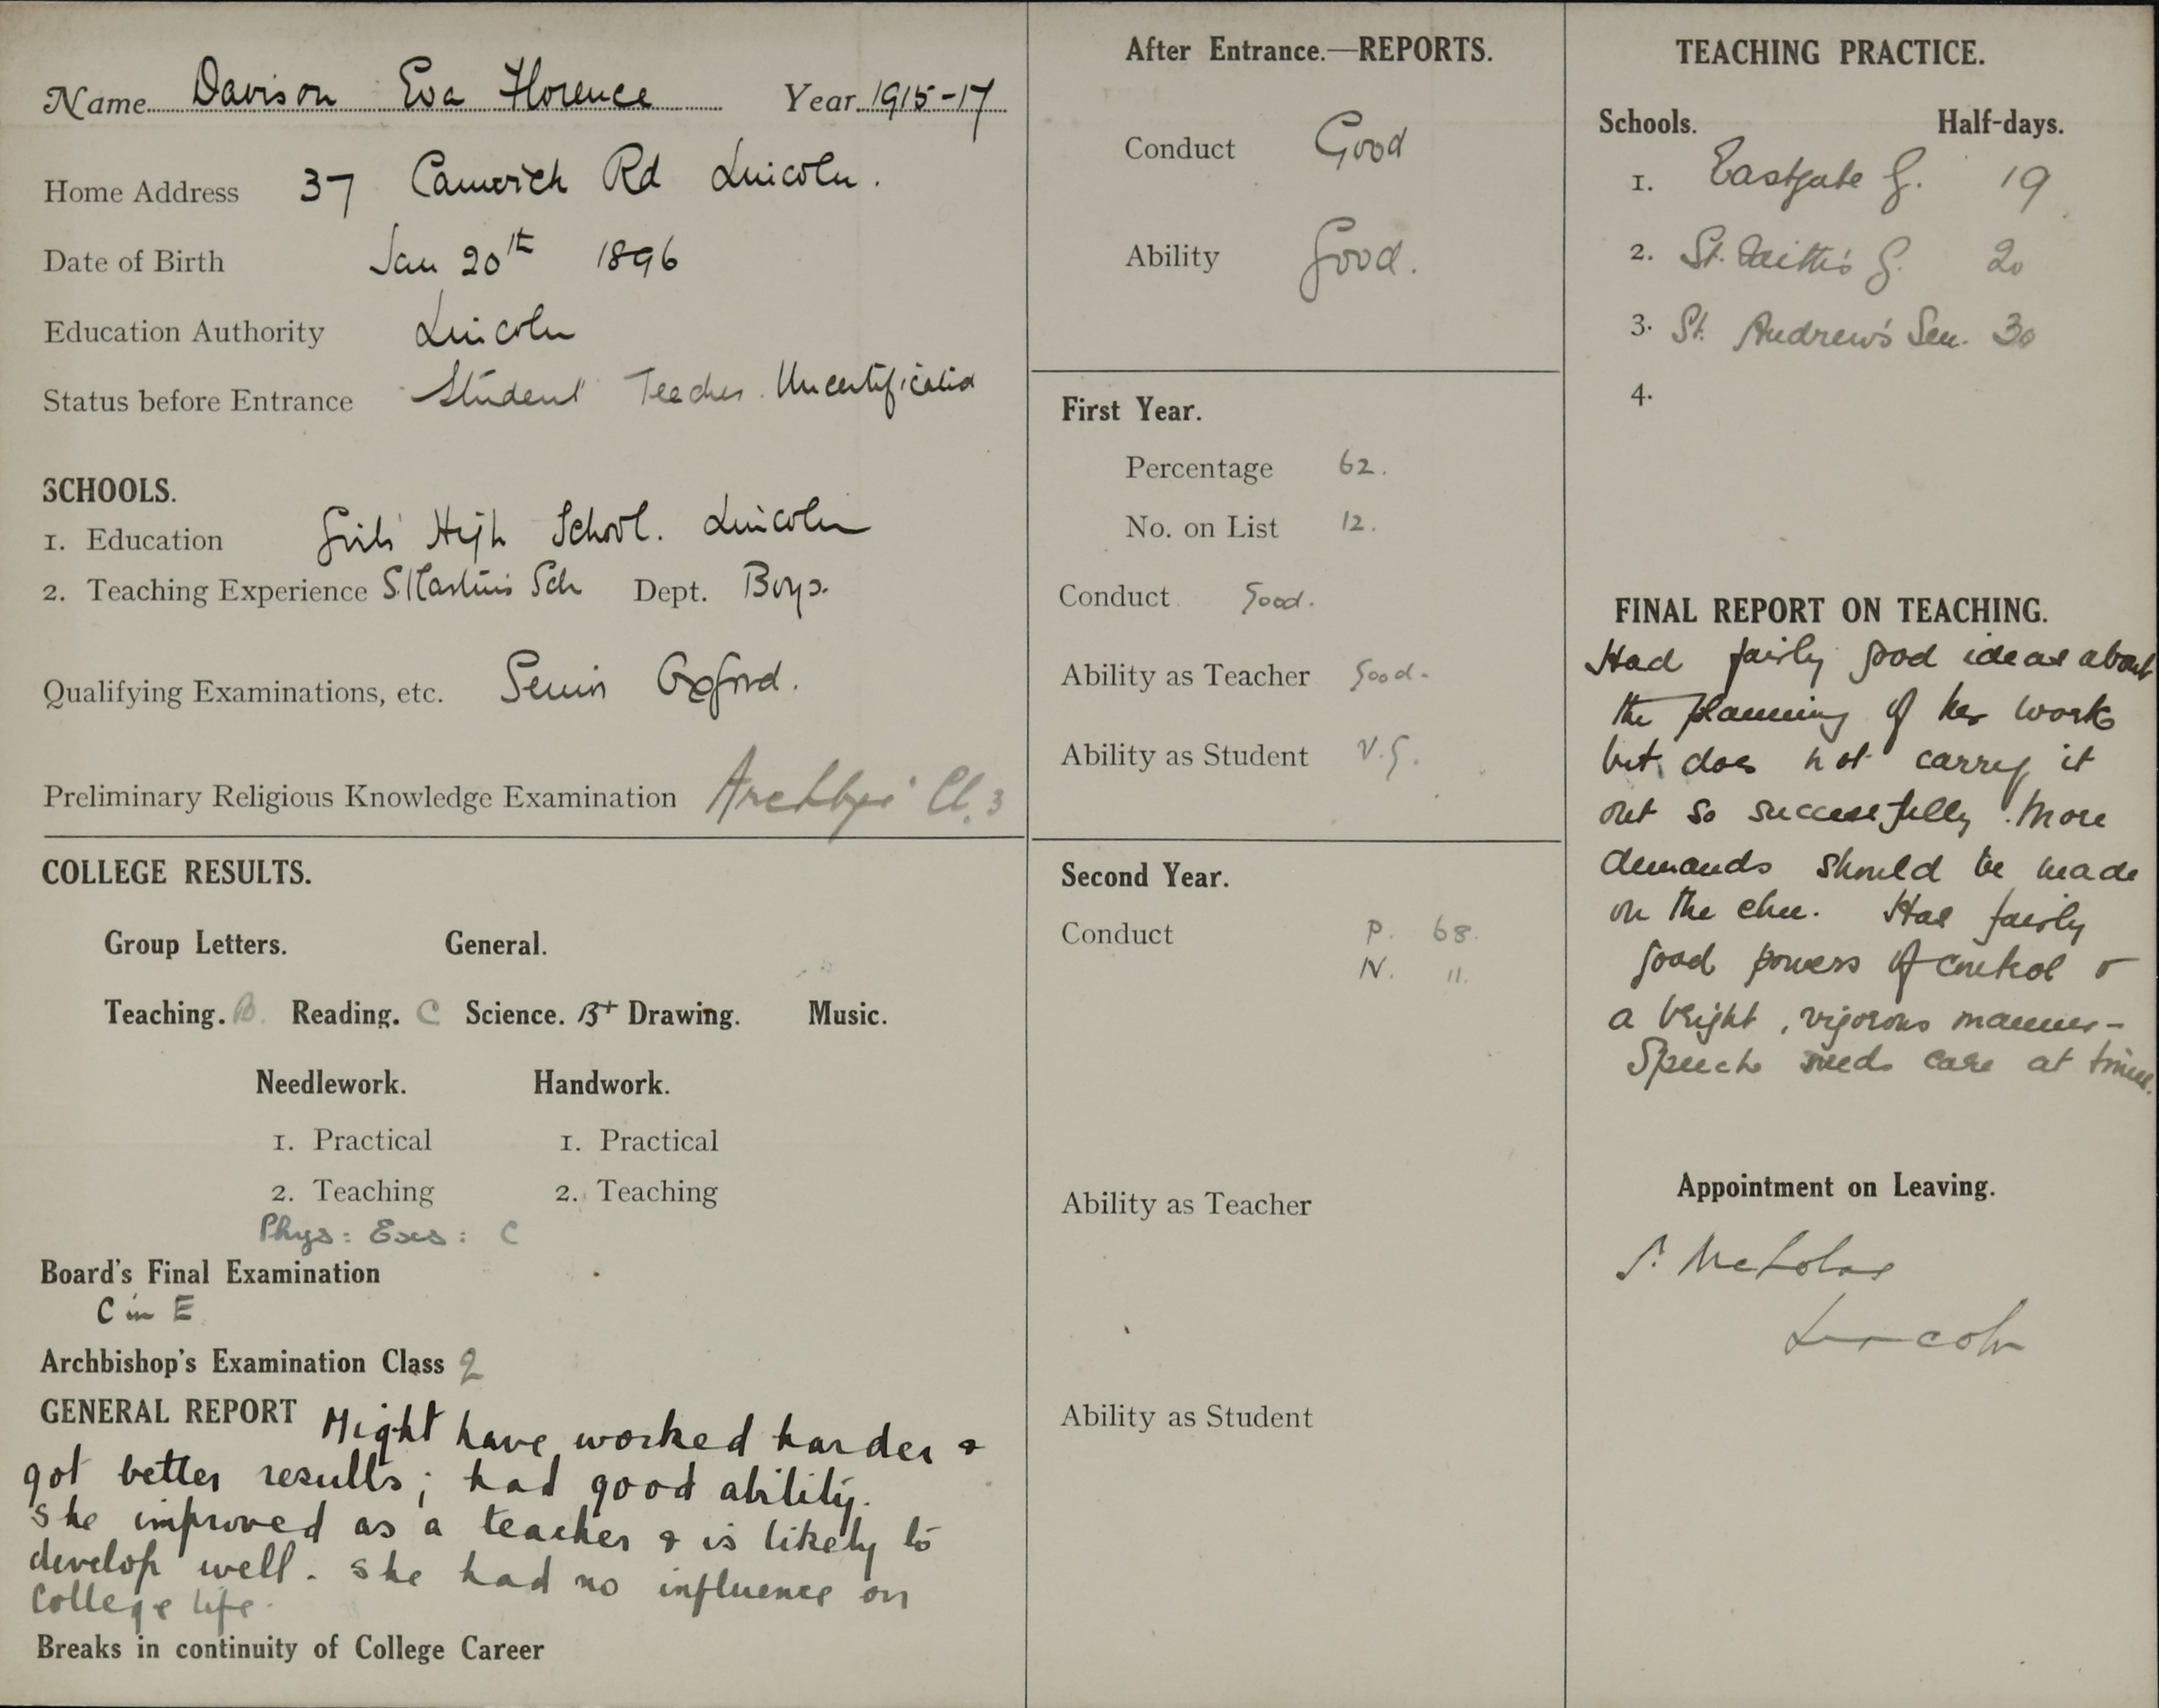 Name Davison Eva Florence Year 1915-17
Home Address 37 Canwick Rd Lincoln.
Date of Birth Jan 20th 1896
Education Authority Lincoln
Status before Entrance Student Teacher. Uncertificated
SCHOOLS.
1. Education Girls' High School. Lincoln
2. Teaching Experience S. Martin's Sch Dept. Boys.
Qualifying Examinations, etc. Senior Oxford.
Preliminary Religious Knowledge Examination Archbps' Cl. 3
COLLEGE RESULTS.
Group Letters. General.
Teaching. B. Reading. C Science. B+ Drawing. Music.
Needlework. Handwork.
1. Practical 1. Practical
2. Teaching 2. Teaching
Phys: Exs: C
Board's Final Examination
C in E
Archbishop's Examination Class 2
GENERAL REPORT Might have worked harder &
got better results; had good ability.
She improved as a teacher & is likely to
develop well. She had no influence on
College life.
Breaks in continuity of College Career
After Entrance.—REPORTS.
Conduct Good
Ability Good.
First Year.
Percentage 62.
No. on List 12.
Conduct Good.
Ability as Teacher Good.
Ability as Student V.G.
Second Year.
Conduct P. 68.
N. 11.
Ability as Teacher
Ability as Student
TEACHING PRACTICE.
Schools. Half-days.
1. Eastgate G. 19
2. St. Faith's G. 20
3. St. Andrew's Sen. 30
4.
FINAL REPORT ON TEACHING.
Had fairly good ideas about
the planning of her work
but does not carry it
out so successfully. More
demands should be made
on the chn. Has fairly
good powers of control &
a bright, vigorous manner-
Speech needs care at times.
Appointment on Leaving.
S. Nicholas
Lincoln